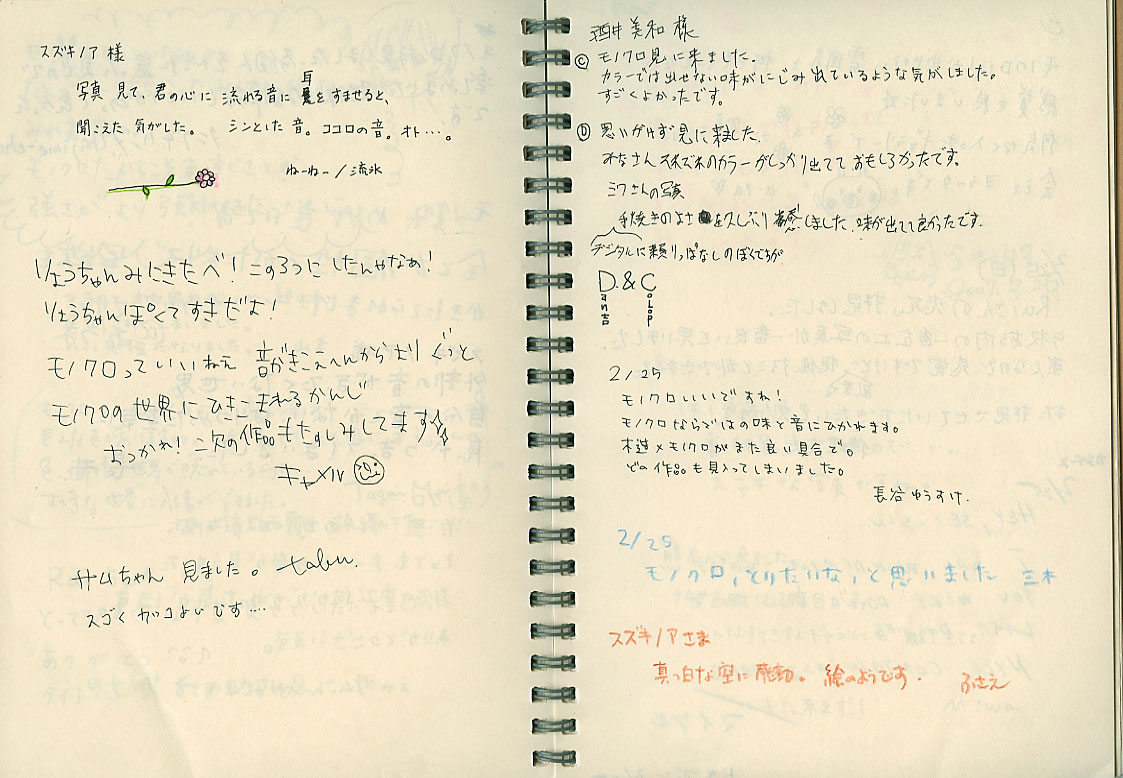 スズキノア 様
写真 見て、君の心に 流れる音に 耳をすませると、
聞こえた 気がした。 シンとした 音。ココロの音。オト…。
ねーねー／流氷
りょうちゃんみにきたべ！このろうにしたんやなぁ！
りょうちゃんぽくてすきだよ！
モノクロっていいねえ 音がきこえへんからより ぐっと
モノクロの世界にひきこまれるかんじ
おつかれ！次の作品もたのしみしてます
キャメル
サムちゃん 見ました。 tabu
スゴく カッコよいです…
酒井美和 様
Ⓒ モノクロ見に来ました。
カラーでは出せない味がにじみ出ているような気がしました。
すごくよかったです。
Ⓓ 思いがけず見に来ました。
みなさんそれぞれのカラーがしっかり出てておもしろかったです。
ミワさんの写真
手焼きのよさを久しぶりに感じました。味が出てて良かったです。
デジタルに頼りっぱなしのぼくですが
D & C
an吉 oLop
2/25
モノクロいいですね！
モノクロならではの味と音にひかれます。
木造×モノクロがまた良い具合で。
どの作品も見入ってしまいました。
長谷 ゆうすけ.
2/25
モノクロ，とりたいな，と思いました 三木
スズキノアさま
真っ白な空に感動。絵のようです． ふさえ